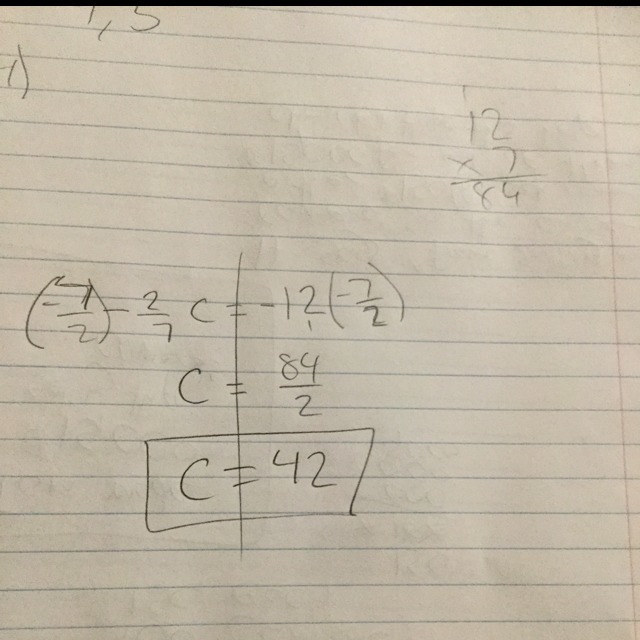 1)
12
× 7
84
(-7/2) - 2/7 c = -12(-7/2)
c = 84/2
c = 42